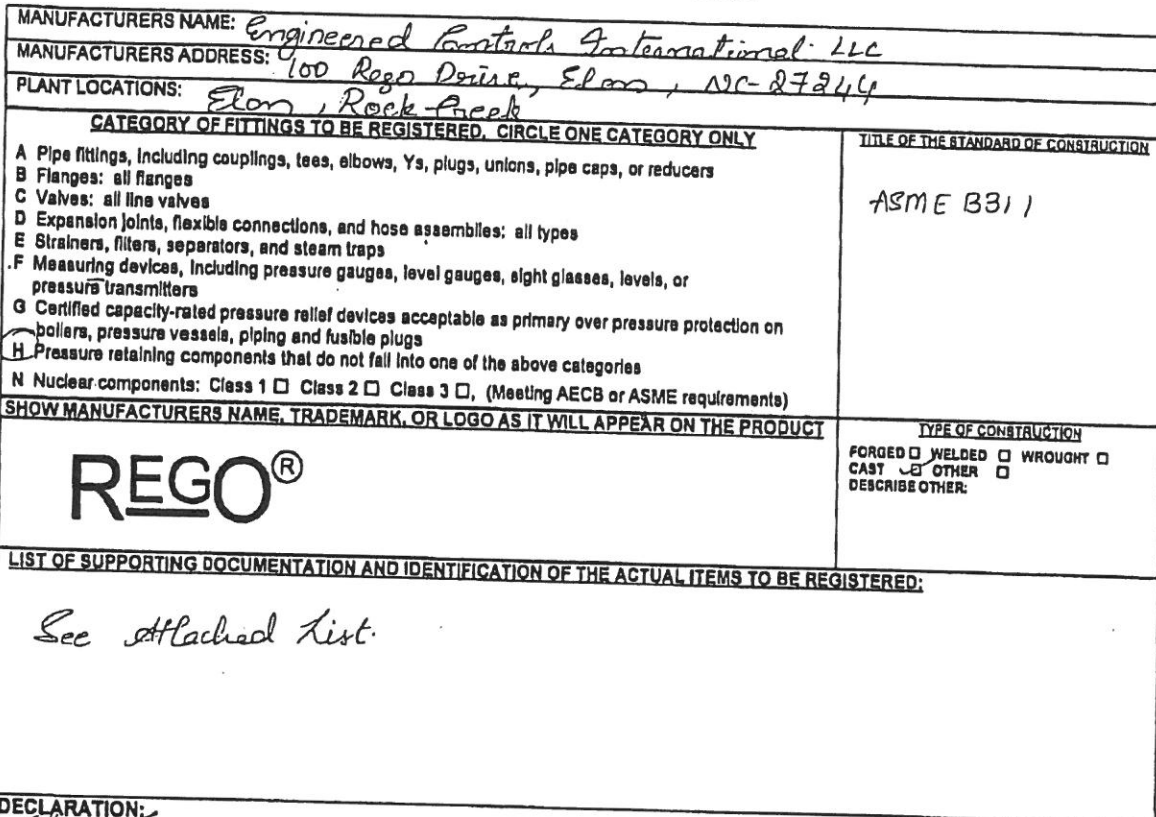 MANUFACTURERS NAME: Engineered Controls International LLC
MANUFACTURERS ADDRESS: 100 Rego Drive, Elon, NC-27244
PLANT LOCATIONS: Elon, Rock Creek
CATEGORY OF FITTINGS TO BE REGISTERED, CIRCLE ONE CATEGORY ONLY
A Pipe fittings, including couplings, tees, elbows, Ys, plugs, unions, pipe caps, or reducers
B Flanges: all flanges
C Valves: all line valves
D Expansion joints, flexible connections, and hose assemblies: all types
E Strainers, filters, separators, and steam traps
F Measuring devices, including pressure gauges, level gauges, sight glasses, levels, or
pressure transmitters
G Certified capacity-rated pressure relief devices acceptable as primary over pressure protection on
boilers, pressure vessels, piping and fusible plugs
H Pressure retaining components that do not fall into one of the above categories
N Nuclear components: Class 1 □ Class 2 □ Class 3 □, (Meeting AECB or ASME requirements)
TITLE OF THE STANDARD OF CONSTRUCTION
ASME B311
SHOW MANUFACTURERS NAME, TRADEMARK, OR LOGO AS IT WILL APPEAR ON THE PRODUCT
REGO®
TYPE OF CONSTRUCTION
FORGED □ WELDED □ WROUGHT □
CAST ☑ OTHER □
DESCRIBE OTHER:
LIST OF SUPPORTING DOCUMENTATION AND IDENTIFICATION OF THE ACTUAL ITEMS TO BE REGISTERED:
See Attached List.
DECLARATION: